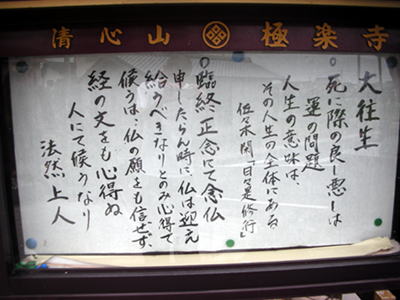 清心山 極楽寺
大往生
○死に際の良し悪しは
運の問題
人生の意味は、
その人生の全体にある
佐々木閑「日々是修行」
○臨終正念にて念仏
申したらん時に、仏は迎え
給うべきなりとのみ心得て
候うは、仏の願をも信せず
経の文をも心得ぬ
人にて候うなり
法然上人